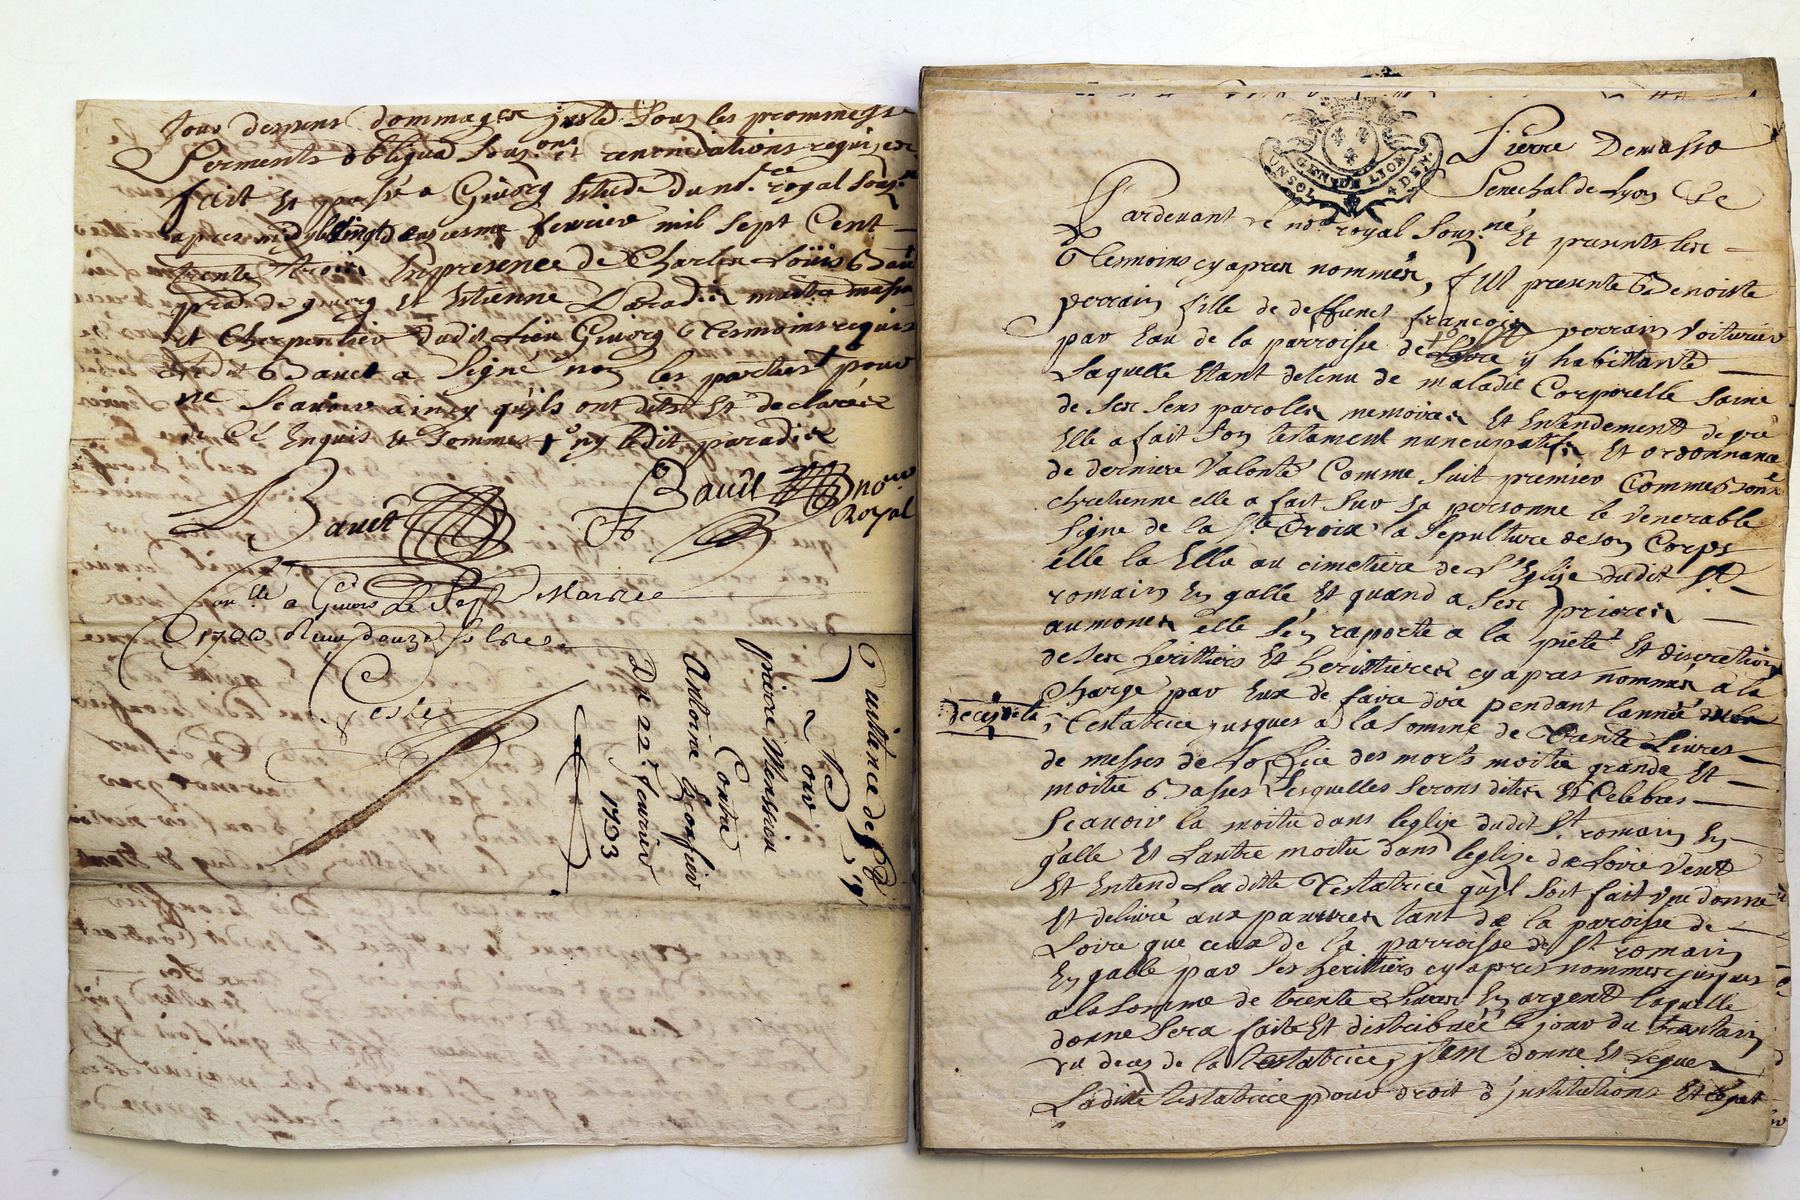 tous depens dommages sous les prommesse
serments obligaõns renonciations requises
fait et passé a Givorg Etude du not.re royal sous.né
apres midy vingt deuxiesme fevrier mil sept Cent
trente trois En presence de Charles Loüis Bauët
prat. de givorg et Estienne Paradis maitre masson
et Charpentier dudit Lieu Givorg tesmoins requis
Ledit Bauët a signé non les parties pour
ne Scavoir ainsy qu'ils ont dit et declaré
de Ce Enquis et Sommes ny ledit paradis
Bauët
Bauët no.re
Royal
Con.llé a Givors Le Sept Mars
1733 Reçu douze sols
Teste
Quittance de
Pour
pierre Monssieu
Contre
Antoine
Du 22.e feurier
1733
GEN. DE LYON
UN SOL 4 DEN.
Pierre Demasso
Senechal de Lyon
Pardevant le no.re royal sous.né Et presents les
tesmoins cy apres nommés, fut presente Benoiste
perrain fille de deffunct françois perrain voiturier
par Eau de la parroisse de Loire y habittante
Laquelle Etant detenu de maladie Corporelle saine
de ses sens paroles memoires Et Entendement de gré
Elle a fait son testament nuncupatif Et ordonnance
de derniere Valonté Comme suit premier Comme bonne
chretienne elle a fait sur sa personne le venerable
signe de la S.te Croix la sepulture de son Corps
elle la Ellu au cimetiere de L'Eglise dudit S.t
romain En galle Et quand a ses prieres
aumones elle s'en raporte a la pieté Et discretion
de ses heritiers Et heritieres cy apres nommés a la
Charge par Eux de faire dire pendant lannée du
deces de la
testatrice jusques a la somme de trente Livres
de messes de Loffice des morts moitie grande Et
moitié Basses Lesquelles serons dites Et Celebres
scavoir la moitie dans leglise dudit S.t romain En
galle Et Lautre moitie dans leglize de Loire veut
Et Entend Laditte Testatrice quil soit fait une donne
Et delivré aux pauvres tant de la paroisse de
Loire que ceux de la parroisse de S.t romain
En galle par ses heritiers cy apres nommes jusques
a la somme de trente Livres En argent laquelle
donne sera faite Et distribuée le jour du trentain
du deces de la testatrice, Item donne Et Legue
Laditte testatrice pour droit d'institutions Et